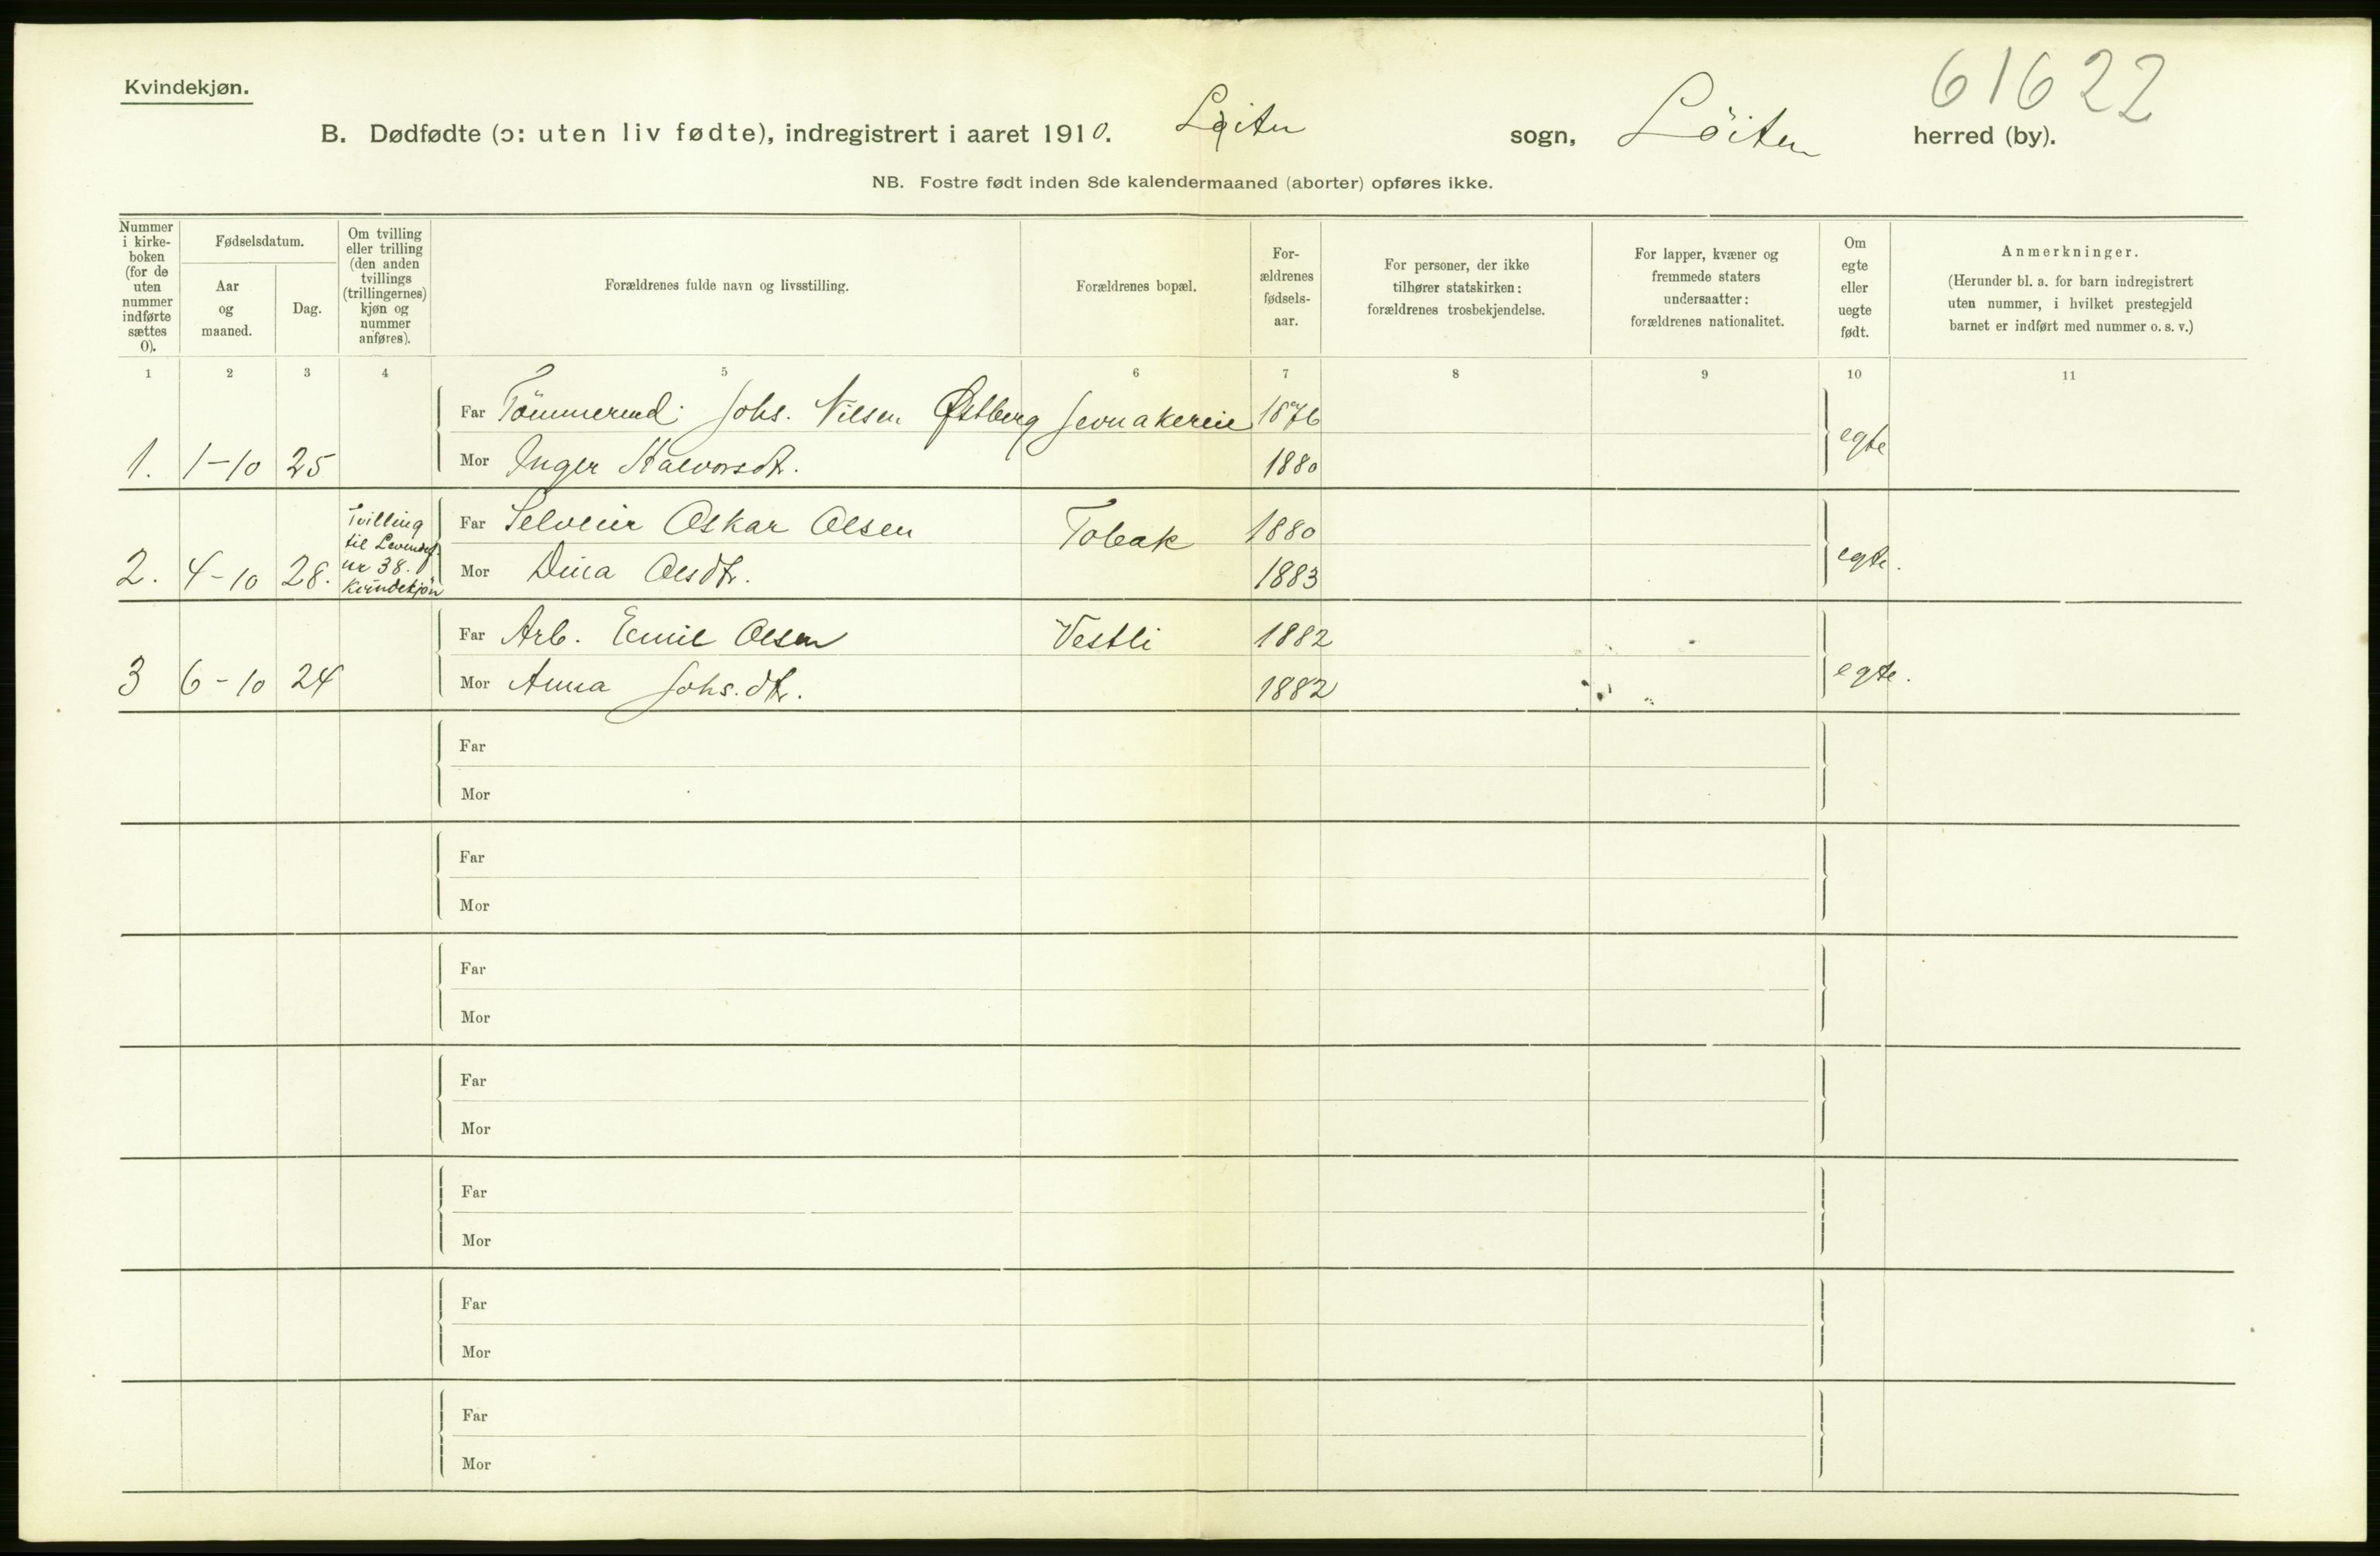 61622
Kvindekjøn.
B. Dødfødte (ɔ: uten liv fødte), indregistrert i aaret 1910. Løiten sogn, Löiten herred (by).
NB. Fostre født inden 8de kalendermaaned (aborter) opføres ikke.
Nummer i kirke- boken (for de uten nummer indførte sættes 0).
Fødselsdatum.
Aar og maaned.
Dag.
Om tvilling eller trilling (den anden tvillings (trillingernes) kjøn og nummer anføres).
Forældrenes fulde navn og livsstilling.
Forældrenes bopæl.
For- ældrenes fødsels- aar.
For personer, der ikke tilhører statskirken: forældrenes trosbekjendelse.
For lapper, kvæner og fremmede staters undersaatter: forældrenes nationalitet.
Om egte eller uegte født.
Anmerkninger.
(Herunder bl. a. for barn indregistrert uten nummer, i hvilket prestegjeld barnet er indført med nummer o. s. v.)
1 2 3 4 5 6 7 8 9 10 11
Far Tömmermd. Johs. Nilsen Østberg 1876
1. 1-10 25 Mor Inger Halvorsdt. 1880 egte
Tvilling til Levendef. nr 38. Kvindekjön
Far Selveier Oskar Olsen 1880
2. 4-10 28. Mor Dina Olsdtr. 1883 egte.
Far Arb. Emil Olsen Vestli 1882
3 6-10 24 Mor Anna Johs.dtr. 1882 egte.
Far
Mor
Far
Mor
Far
Mor
Far
Mor
Far
Mor
Far
Mor
Far
Mor